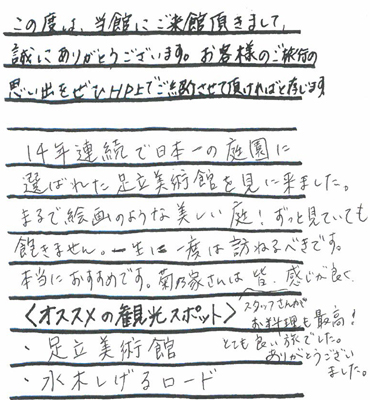 この度は、当館にご来館頂きまして、
誠にありがとうございます。お客様のご旅行の
思い出をぜひHP上でご紹介させて頂ければと存じます
14年連続で日本一の庭園に
選ばれた足立美術館を見に来ました。
まるで絵画のような美しい庭！ずっと見ていても
飽きません。一生に一度は訪ねるべきです。
本当におすすめです。菊乃家さんは皆、感じが良く、
スタッフさんが
お料理も最高！
とても良い旅でした。
ありがとうござい
ました。
〈オススメの観光スポット〉
・足立美術館
・水木しげるロード